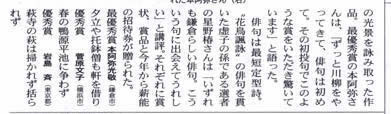 の光景を詠み取った作
品。最優秀賞の本阿弥さ
んは、「ずっと川柳をや
ってきて、俳句は初め
て。その初投句でこのよ
うな賞をいただき驚いて
います」と語った。
俳句は最短定型詩。
「花鳥諷詠」の俳句を貫
いた虚子の孫である選者
の星野椿さんは「いずれ
も鎌倉らしい俳句。こう
いう句に出会えてうれし
い」と講評。それぞれに賞
状、賞品と今年から薪能
の招待券が贈られた。
最優秀賞 本阿弥光敏(鎌倉市)
夕立や托鉢僧も軒を借り
優秀賞 菅原文子(横浜市)
春の鴨源平池に争わず
優秀賞 岩島斉(東京都)
萩寺の萩は掃かれず括ら